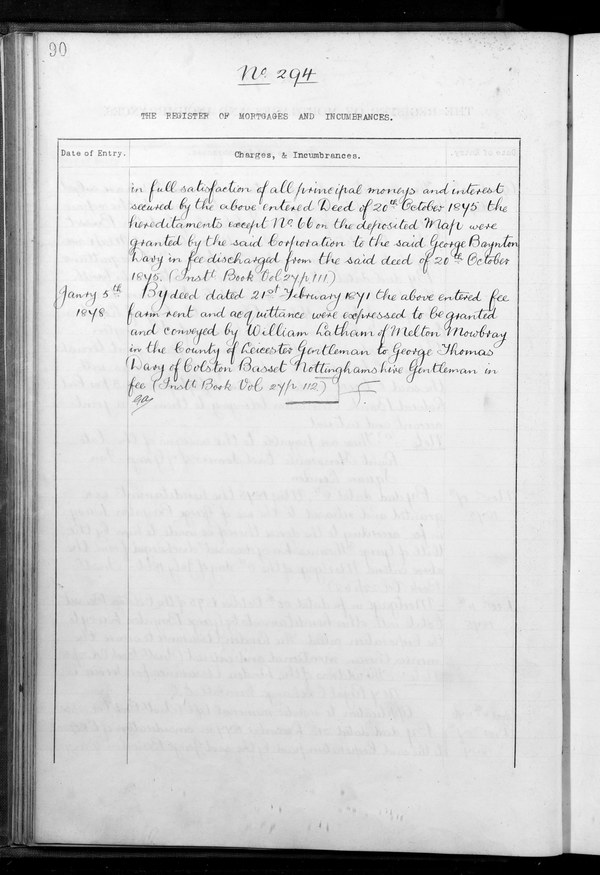 90
No. 294
THE REGISTER OF MORTGAGES AND INCUMBRANCES.
Date of Entry.
Charges, & Incumbrances.
in full satisfaction of all principal moneys and interest
secured by the above entered Deed of 20th October 1875 the
hereditaments except No. 66 on the deposited Map were
granted by the said Corporation to the said George Baynton
Davy in fee discharged from the said deed of 20th October
1875. (Inst. Book Vol 27/p 111)
Janry 5th
1878
By deed dated 21st February 1871 the above entered fee
farm rent and acquittance were expressed to be granted
and conveyed by William Latham of Melton Mowbray
in the County of Leicester Gentleman to George Thomas
Davy of Colston Basset Nottinghamshire Gentleman in
fee (Inst. Book Vol. 27/p 112)